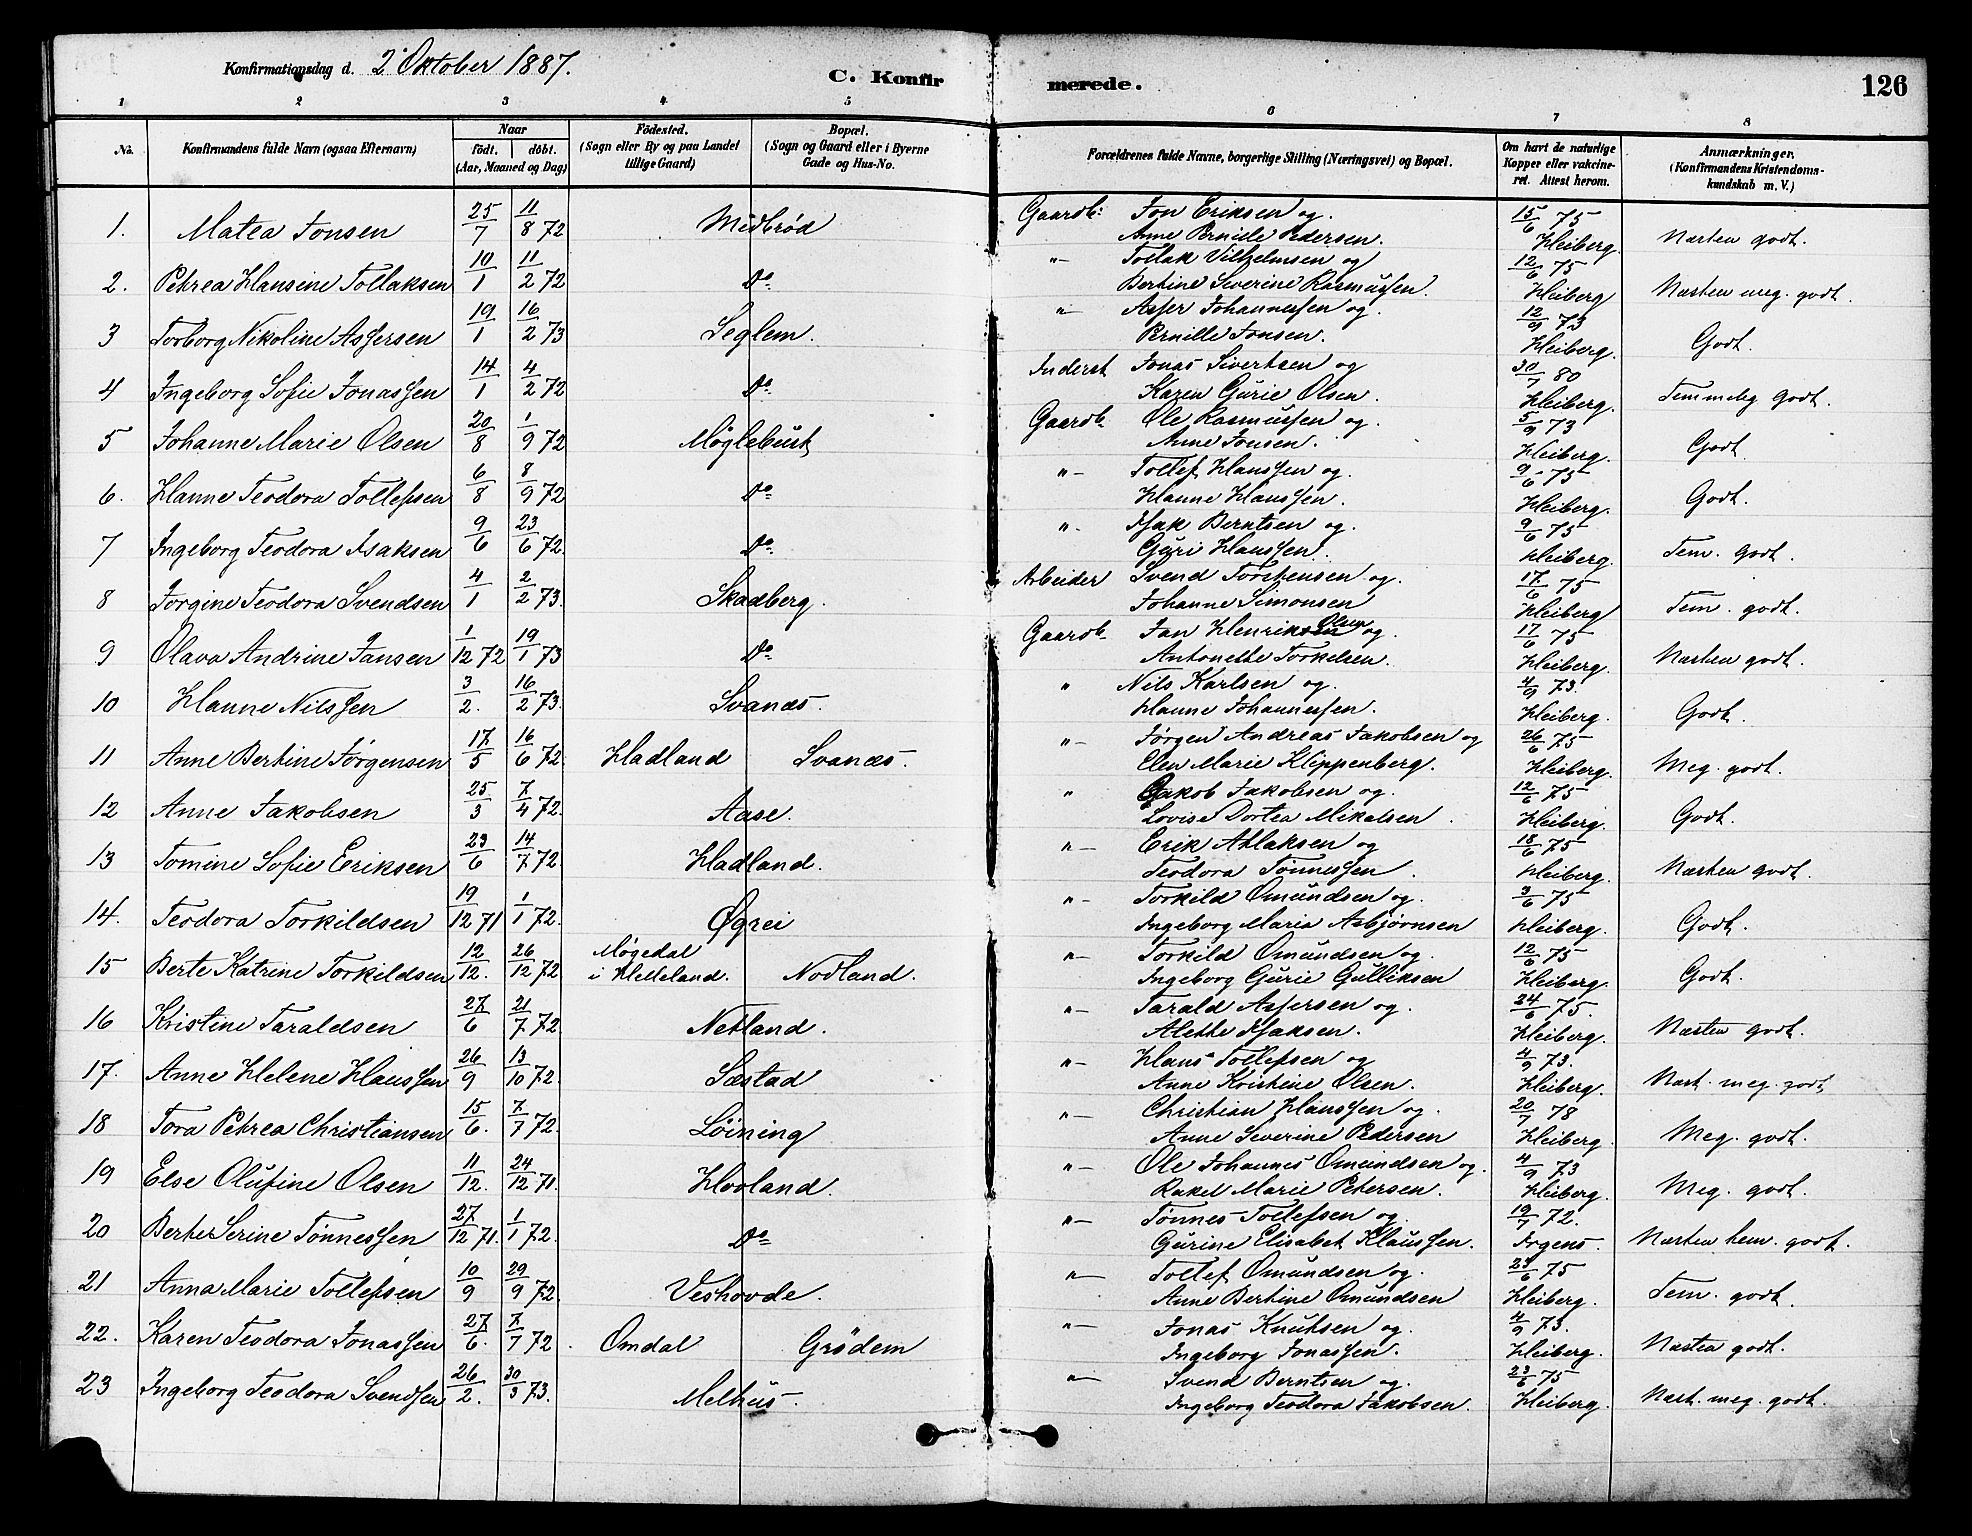 Konfirmationsdag d. 2 Oktober 1887. C. Konfirmerede. 126
1 2 3 4 5 6 7 8
No. Konfirmandens fulde Navn (ogsaa Efternavn) Naar födt. döbt. (Aar, Maaned og Dag) Födested. (Sogn eller By og paa Landet tillige Gaard) Bopæl. (Sogn og Gaard eller i Byerne Gade og Hus-No. Forældrenes fulde Navne, borgerlige Stilling (Næringsvei) og Bopæl. Om havt de naturlige Kopper eller vakcineret. Attest herom. Anmærkninger. (Konfirmandens Kristendomskundskab m. V.)
1. Matea Jonsen 25/7 11/8 72 Midbrød Gaardb: Jon Eriksen og Anne Pernille Pedersen. 15/6 75 Heiberg Næsten godt.
2. Petrea Hansine Tollaksen 10/1 11/2 72 Do " Tollak Vilhelmsen og Bertine Severine Rasmussen. 12/6 75 Heiberg Næsten meg. godt.
3 Torborg Nikoline Assersen 19/1 16/2 73 Seglem. " Asser Johannessen og Pernille Jonsen. 12/9 73 Heiberg. Godt.
4 Ingeborg Sofie Jonassen 14/1 4/2 72 Do Inderst Jonas Sivertsen og Karen Gurie Olsen. 30/7 80 Heiberg. Temmelig godt.
5 Johanne Marie Olsen 20/8 1/9 72 Møglebust Gaardb Ole Rasmussen og Anne Jonsen. 5/9 73 Heiberg. Godt.
6. Hanne Teodora Tollefsen 6/8 8/9 72 Do " Tollef Hanssen og Hanne Hanssen. 9/6 75 Heiberg. Godt.
7 Ingeborg Teodora Isaksen 9/6 23/6 72. Do " Isak Berntsen og Guri Hanssen. 9/6 75 Heiberg. Tem. godt.
8 Jorgine Teodora Svendsen 4/1 2/2 73. Skadberg. Arbeider Svend Torstensen og Johanne Simonsen 17/6 75 Heiberg Tem. godt.
9 Olava Andrine Jansen 1/12 72 19/1 73 Do Gaardb Jan Henriksen Olsen og Antonette Torkelsen. 17/6 75 Heiberg. Næsten godt.
10 Hanne Nilssen 3/2. 16/2 73. Svanæs. " Nils Karlsen og Hanne Johannessen. 4/9 73. Heiberg. Godt.
11 Anne Bertine Jørgensen 17/5 16/6 72. Hadland Svanæs. " Jørgen Andreas Jakobsen og Elen Marie Klippenberg. 26/6 75 Heiberg. Meg. godt.
12 Anne Jakobsen 25/3 7/4 72. Aase. " Jakob Jakobsen og Lovise Dortea Mikalsen. 12/6 75 Heiberg. Godt.
13 Tomine Sofie Eriksen 23/6 14/7 72. Hadland. " Erik Atlaksen og Teodora Tønnessen. 18/6 75 Heiberg. Næsten godt.
14. Teodora Torkildsen 19/12 71 1/1 72. Øgrei " Torkild Omundsen og Ingeborg Maria Asbjørnsen 3/6 75 Heiberg. Godt.
15 Berte Katrine Torkildsen 12/12. 26/12 72 Møgedal i Helleland. Nodland. " Torkild Omundsen og Ingeborg Gurie Gulliksen 12/6 75 Heiberg. Godt.
16 Kristine Taraldsen 27/6 21/7 72 Netland. " Tarald Assersen og Alette Isaksen. 24/6 75. Heiberg. Næsten godt.
17. Anne Helene Hanssen 26/9 13/10 72. Sæstad " Hans Tollefsen og Anne Kristine Olsen. 4/9 73. Heiberg. Næst. meg. godt,
18 Tora Petrea Christiansen 15/6. 7/7 72. Løining " Christian Hanssen og Anne Severine Pedersen 20/7 78 Heiberg. Meg. godt.
19 Else Olufine Olsen 11/12. 24/12 71. Hovland. " Ole Johannes Omundsen og Rakel Marie Petersen. 4/9 73 Heiberg. Meg. godt.
20 Berte Serine Tønnessen 27/12 71. 1/1 72. Do " Tønnes Tollefsen og Gurine Elisabet Klaussen. 19/7 72. Irgens. Næsten tem. godt.
21 Anna Marie Tollefsen 10/9 29/9 72. Veshovde. " Tollef Omundsen og Anne Bertine Omundsen 23/6 75 Heiberg. Tem. godt.
22. Karen Teodora Jonassen 27/6. 7/7 72. Omdal Grødem " Jonas Knutsen og Ingeborg Jonassen. 4/9 73. Heiberg. Næsten godt.
23 Ingeborg Teodora Svendsen 26/2. 30/3 73. Melhus. " Svend Berntsen og Ingeborg Teodora Jakobsen. 23/6 75 Heiberg. Næst. meg. godt.